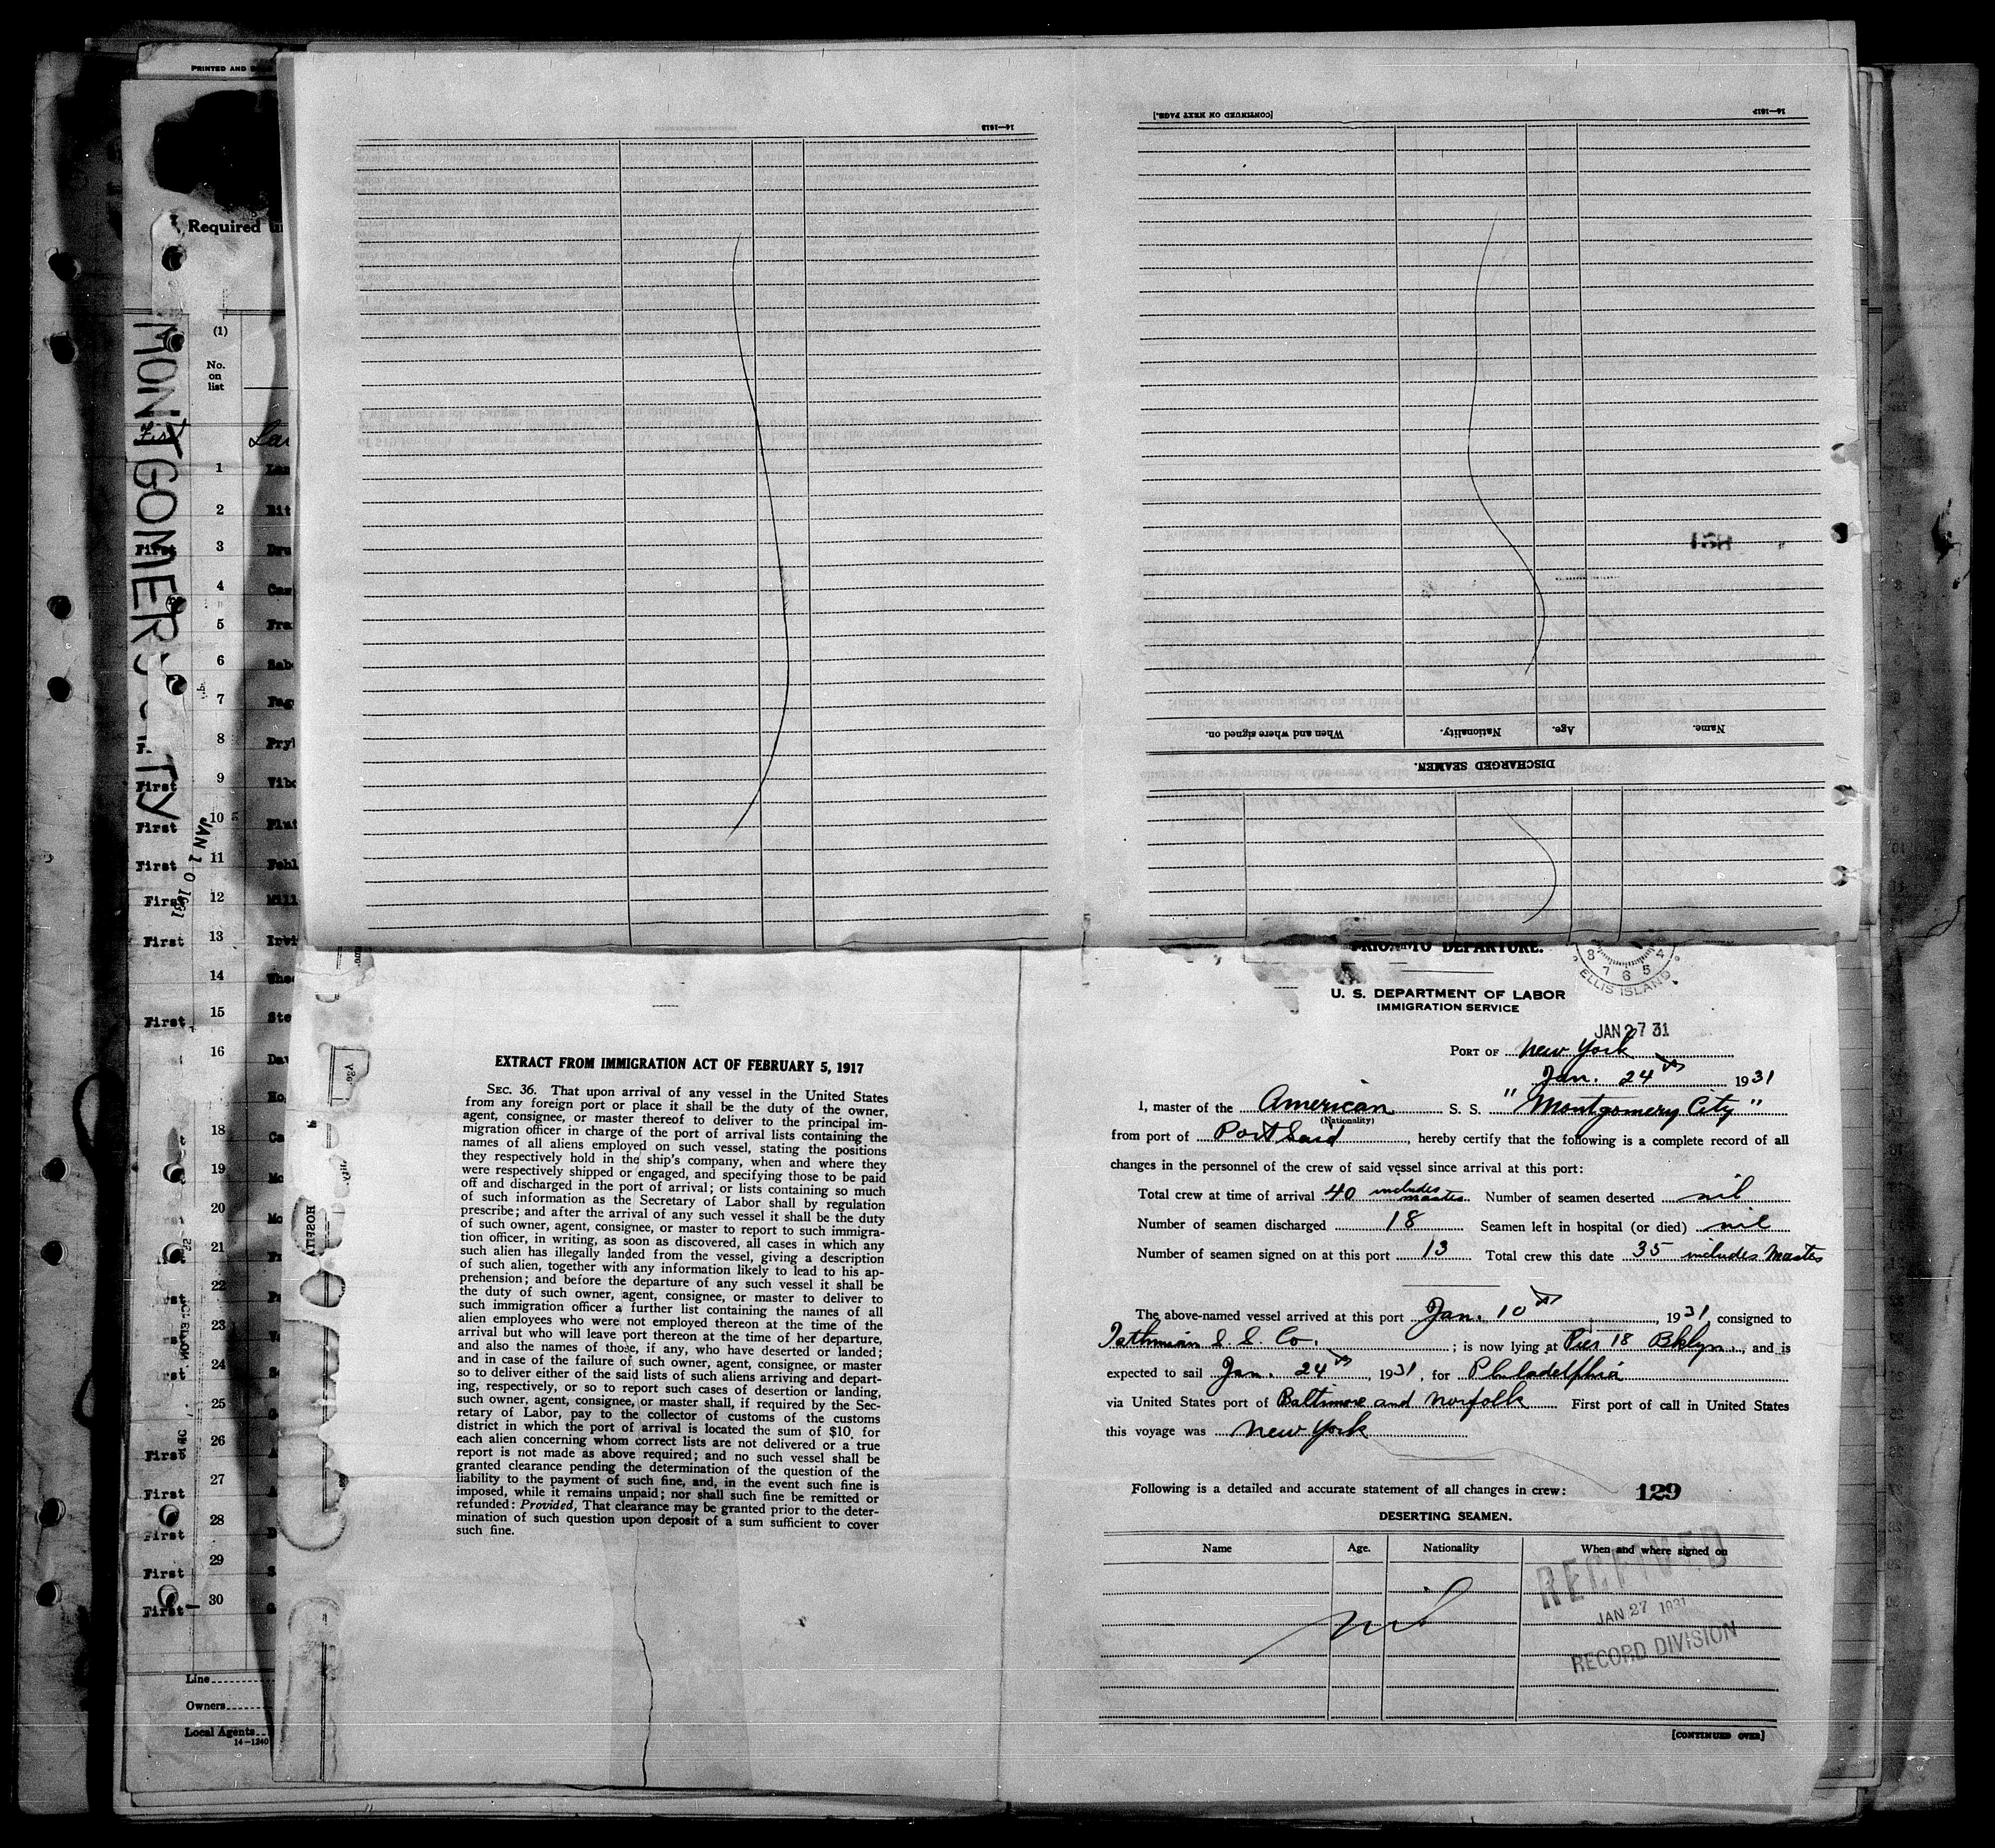 PRINTED AND
Required
MONTGOMERY CITY
JAN 10 1931
(1)
No.
on
list
1
2
First 3
4
5
6
7
8
First 9
First 10
First 11
First 12
First 13
14
First 15
16
18
19
20
21
22
23
24
25
First 26
First 27
First 28
First 29
First 30
Line
Owners
Local Agents
14-1240
14-1618
[CONTINUED ON NEXT PAGE.]
14-1617
When and where signed on.
Nationality.
Age.
Name.
DISCHARGED SEAMEN.
EXTRACT FROM IMMIGRATION ACT OF FEBRUARY 5, 1917
SEC. 36. That upon arrival of any vessel in the United States
from any foreign port or place it shall be the duty of the owner,
agent, consignee, or master thereof to deliver to the principal im-
migration officer in charge of the port of arrival lists containing the
names of all aliens employed on such vessel, stating the positions
they respectively hold in the ship's company, when and where they
were respectively shipped or engaged, and specifying those to be paid
off and discharged in the port of arrival; or lists containing so much
of such information as the Secretary of Labor shall by regulation
prescribe; and after the arrival of any such vessel it shall be the duty
of such owner, agent, consignee, or master to report to such immigra-
tion officer, in writing, as soon as discovered, all cases in which any
such alien has illegally landed from the vessel, giving a description
of such alien, together with any information likely to lead to his ap-
prehension; and before the departure of any such vessel it shall be
the duty of such owner, agent, consignee, or master to deliver to
such immigration officer a further list containing the names of all
alien employees who were not employed thereon at the time of the
arrival but who will leave port thereon at the time of her departure,
and also the names of those, if any, who have deserted or landed;
and in case of the failure of such owner, agent, consignee, or master
so to deliver either of the said lists of such aliens arriving and depart-
ing, respectively, or so to report such cases of desertion or landing,
such owner, agent, consignee, or master shall, if required by the Sec-
retary of Labor, pay to the collector of customs of the customs
district in which the port of arrival is located the sum of $10 for
each alien concerning whom correct lists are not delivered or a true
report is not made as above required; and no such vessel shall be
granted clearance pending the determination of the question of the
liability to the payment of such fine, and, in the event such fine is
imposed, while it remains unpaid; nor shall such fine be remitted or
refunded: Provided, That clearance may be granted prior to the deter-
mination of such question upon deposit of a sum sufficient to cover
such fine.
PRIOR TO DEPARTURE.
8 7 6 5 4
ELLIS ISLAND
U. S. DEPARTMENT OF LABOR
IMMIGRATION SERVICE
JAN 27 31
PORT OF New York
Jan. 24th 1931
I, master of the American S. S. "Montgomery City"
(Nationality)
from port of Port Said, hereby certify that the following is a complete record of all
changes in the personnel of the crew of said vessel since arrival at this port:
Total crew at time of arrival 40 includes master Number of seamen deserted nil
Number of seamen discharged 18 Seamen left in hospital (or died) nil
Number of seamen signed on at this port 13 Total crew this date 35 includes Master
The above-named vessel arrived at this port Jan. 10th, 1931, consigned to
Isthmian S. S. Co.; is now lying at Pier 18 Bklyn., and is
expected to sail Jan. 24th, 1931, for Philadelphia
via United States port of Baltimore and Norfolk First port of call in United States
this voyage was New York
Following is a detailed and accurate statement of all changes in crew: 129
DESERTING SEAMEN.
Name Age. Nationality When and where signed on
nil
RECEIVED
JAN 27 1931
RECORD DIVISION
[CONTINUED OVER]